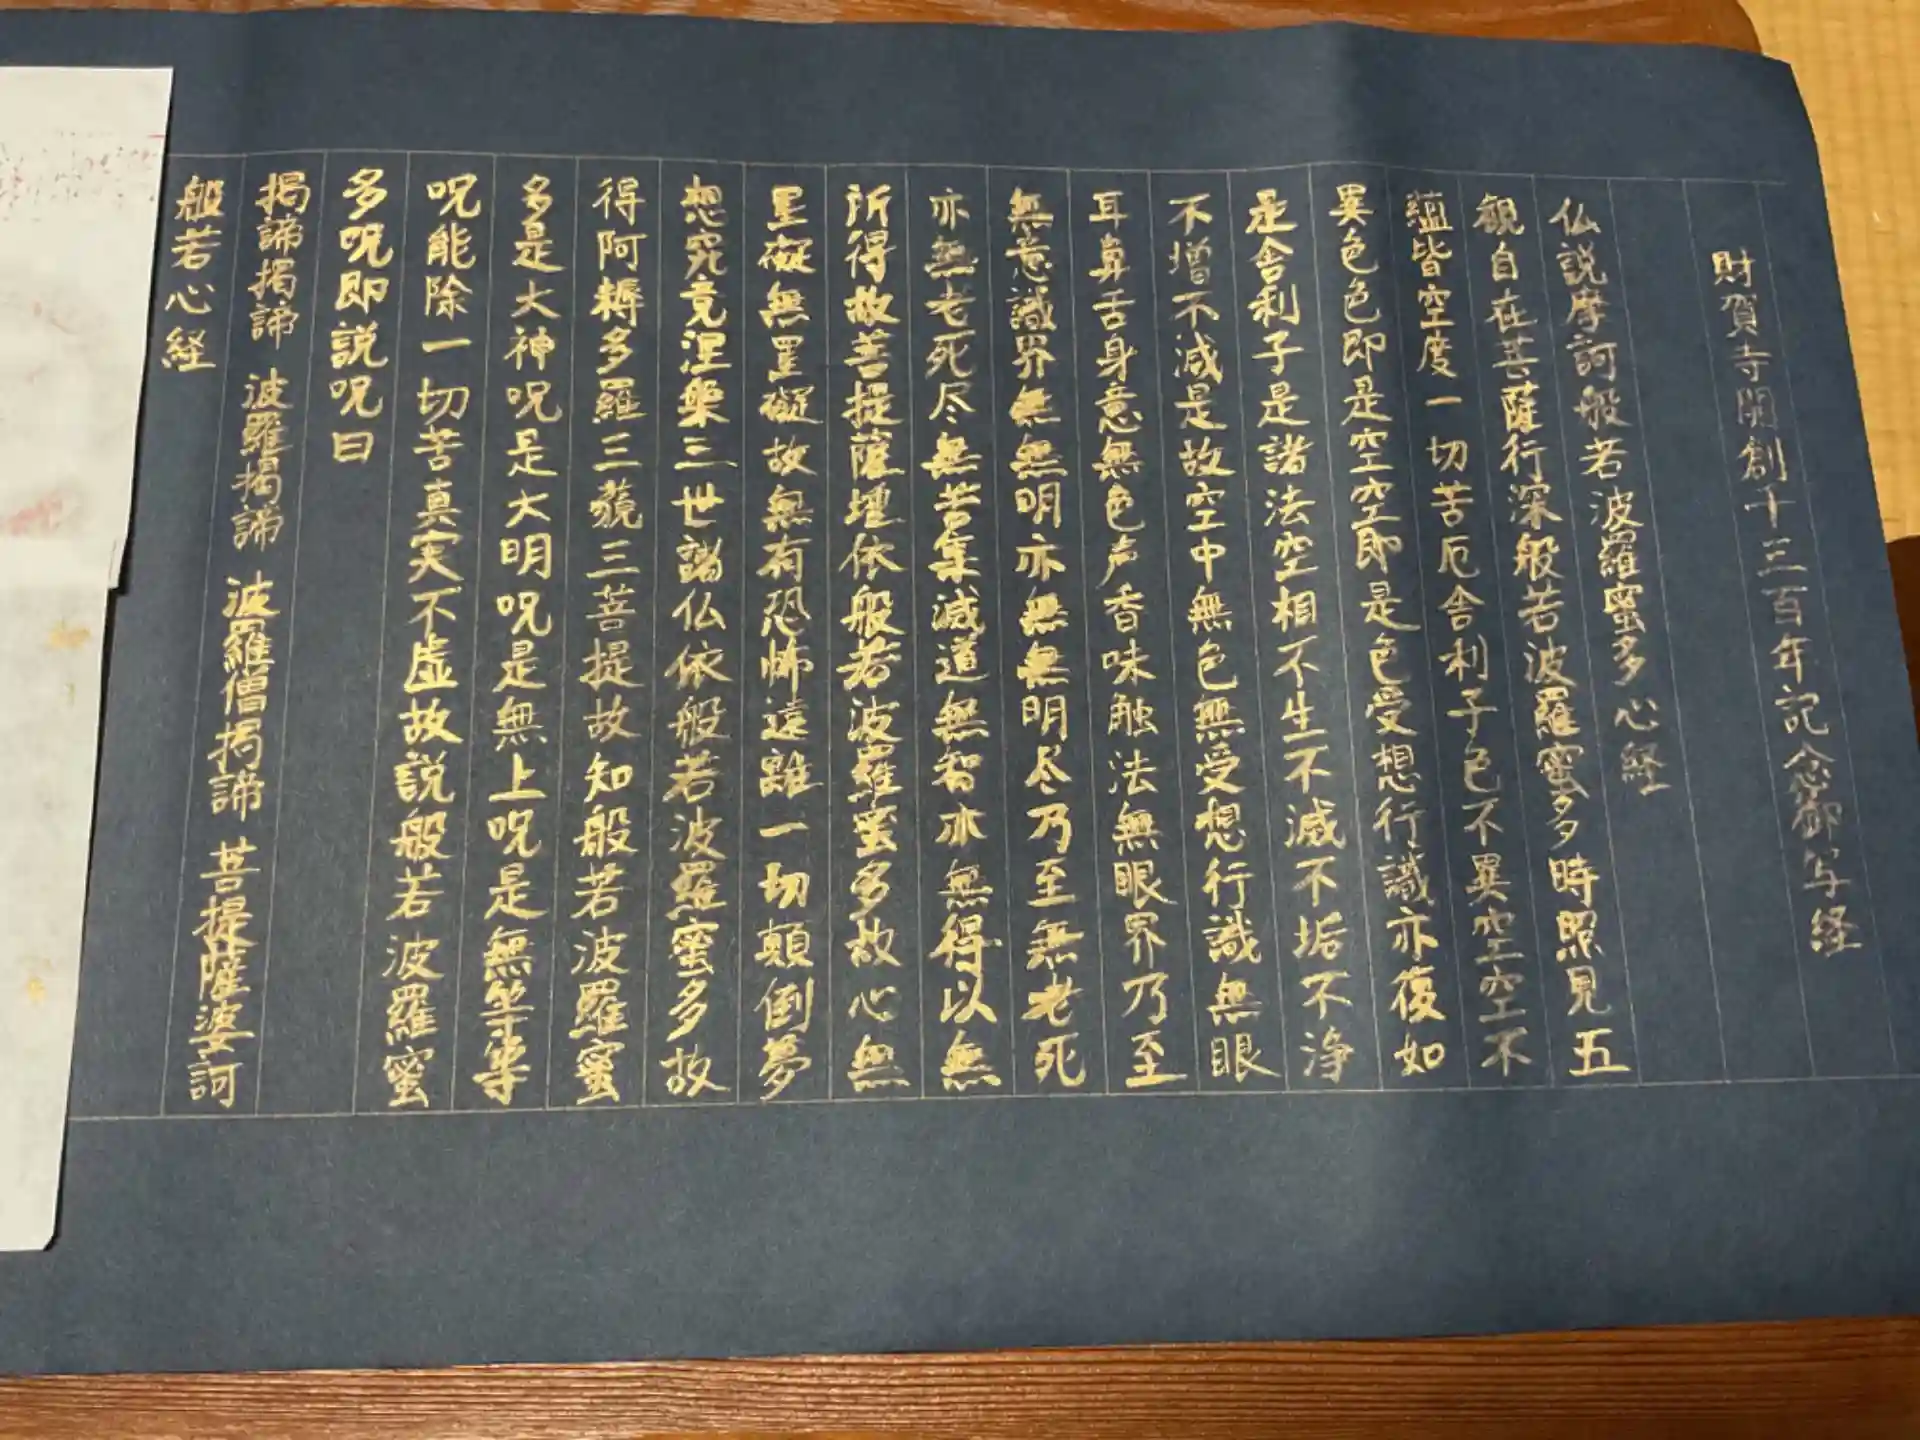 財賀寺開創千三百年記念御写経
仏説摩訶般若波羅蜜多心経
観自在菩薩行深般若波羅蜜多時照見五
蘊皆空度一切苦厄舎利子色不異空空不
異色色即是空空即是色受想行識亦復如
是舎利子是諸法空相不生不滅不垢不浄
不増不減是故空中無色無受想行識無眼
耳鼻舌身意無色声香味触法無眼界乃至
無意識界無無明亦無無明尽乃至無老死
亦無老死尽無苦集滅道無智亦無得以無
所得故菩提薩埵依般若波羅蜜多故心無
罣礙無罣礙故無有恐怖遠離一切顛倒夢
想究竟涅槃三世諸仏依般若波羅蜜多故
得阿耨多羅三藐三菩提故知般若波羅蜜
多是大神呪是大明呪是無上呪是無等等
呪能除一切苦真実不虚故説般若波羅蜜
多呪即説呪曰
掲諦掲諦 波羅掲諦 波羅僧掲諦 菩提薩婆訶
般若心経